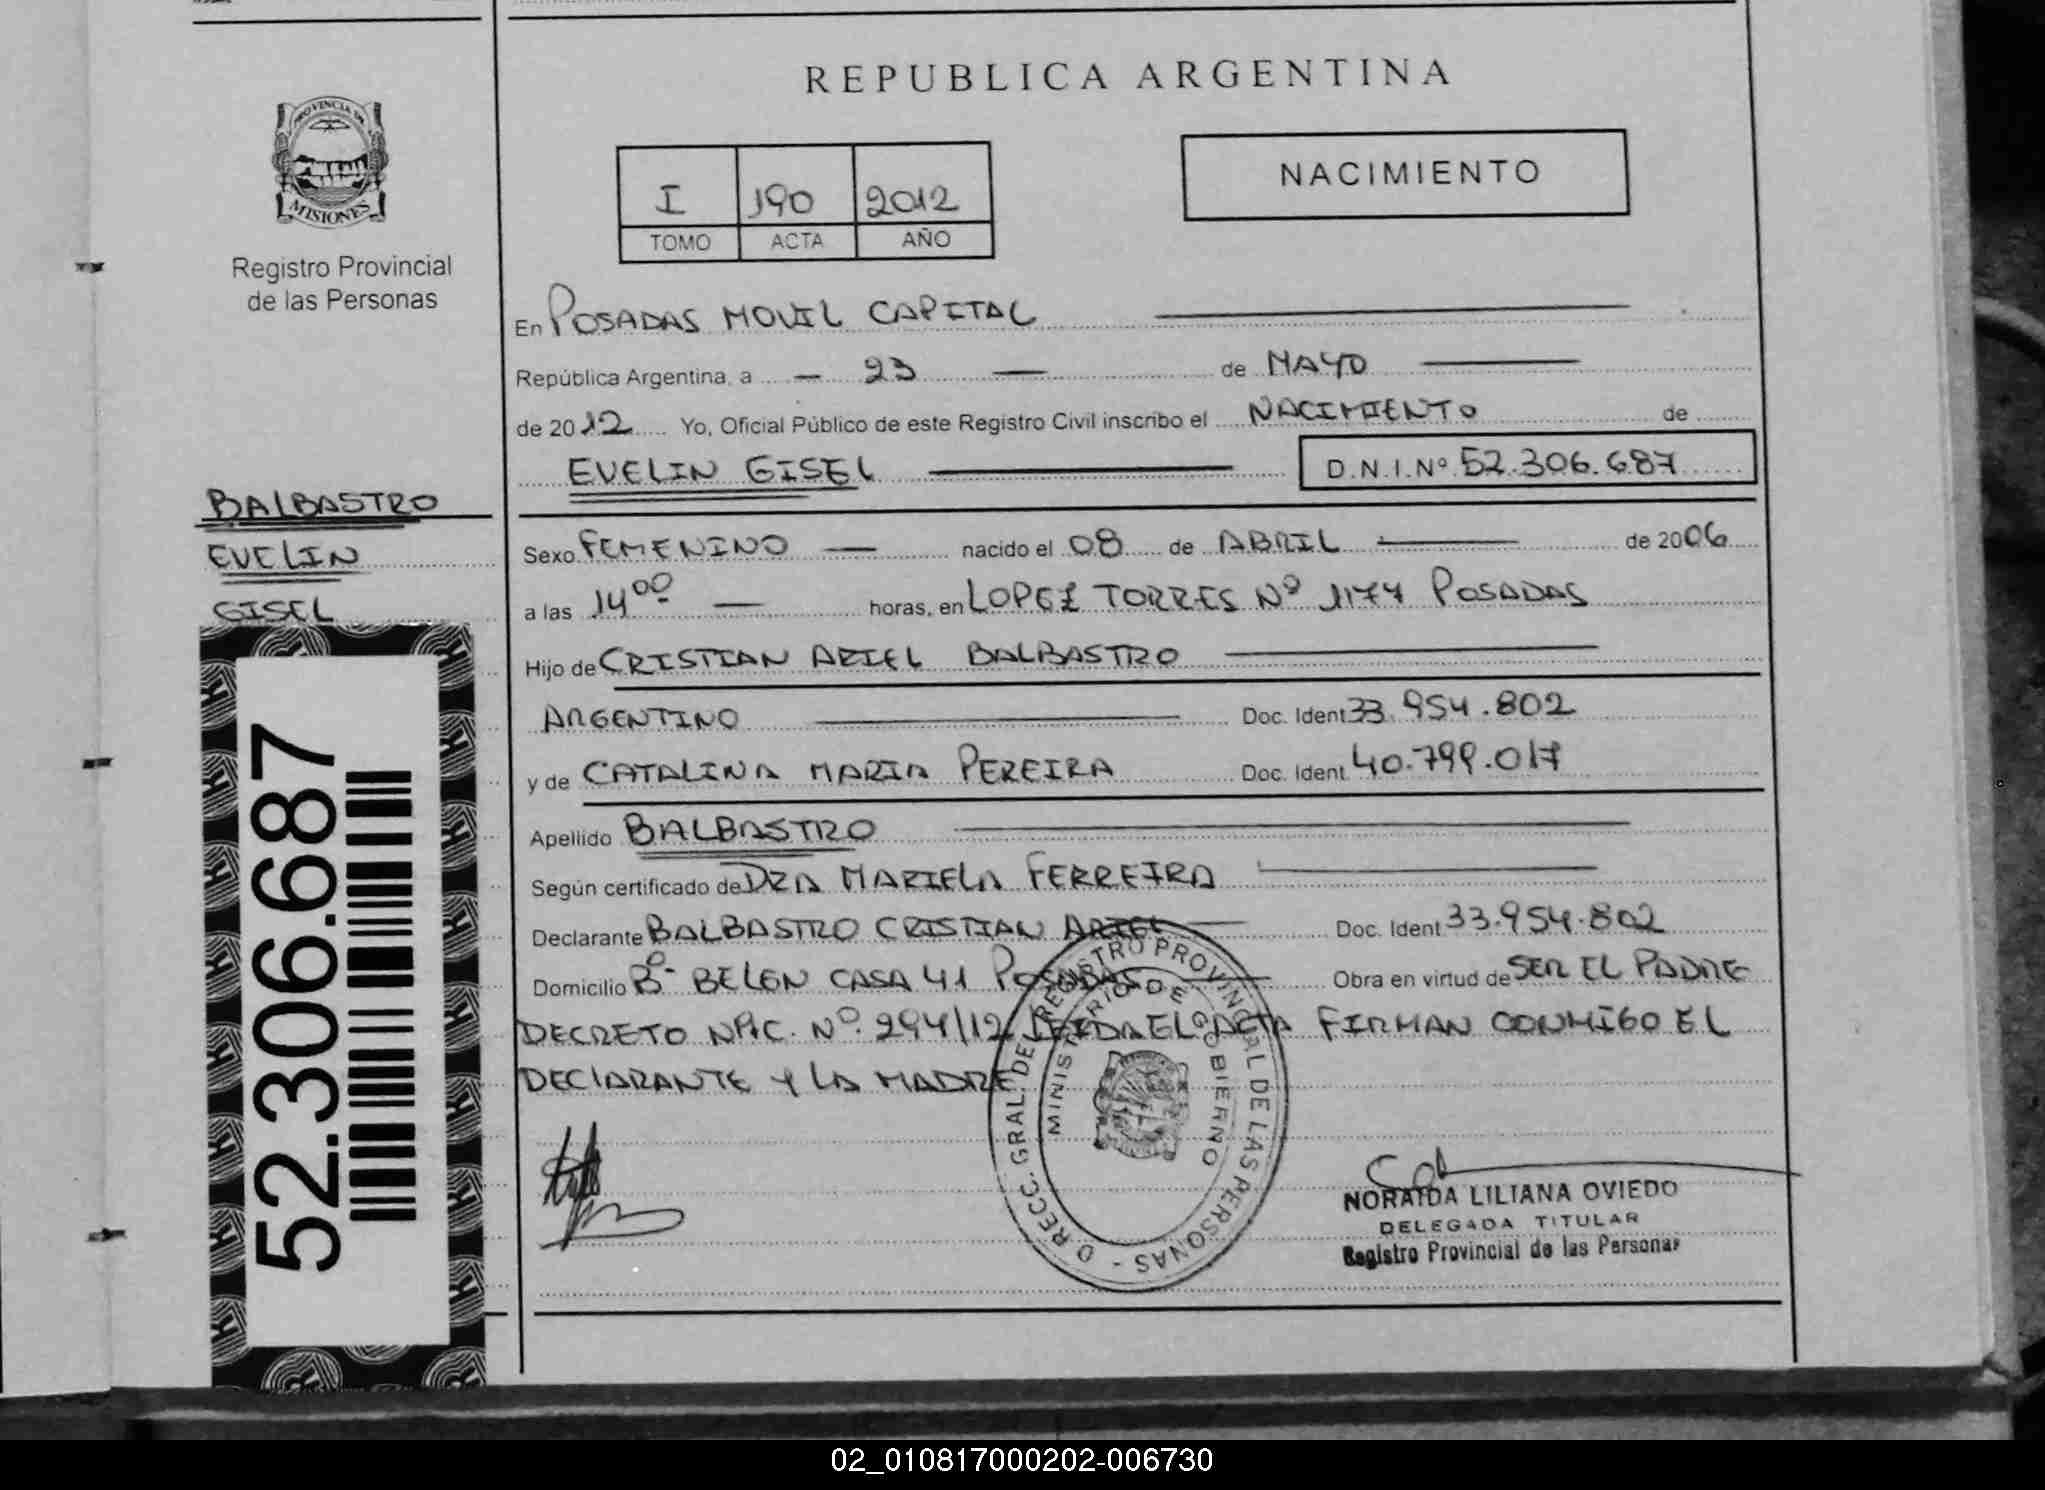 REPUBLICA ARGENTINA
PROVINCIA DE
MISIONES
Registro Provincial
de las Personas
I 190 2012
TOMO ACTA AÑO
NACIMIENTO
En POSADAS MOVIL CAPITAL
República Argentina, a 23 de MAYO
de 2012 Yo, Oficial Público de este Registro Civil inscribo el NACIMIENTO de
EVELIN GISEL D.N.I.Nº 52.306.687
BALBASTRO
EVELIN
GISEL
52.306.687
Sexo FEMENINO nacido el 08 de ABRIL de 2006
a las 14 00 horas, en LOPEZ TORRES Nº 1174 POSADAS
Hijo de CRISTIAN ARIEL BALBASTRO
ARGENTINO Doc. Ident 33.954.802
y de CATALINA MARIA PEREIRA Doc. Ident 40.799.017
Apellido BALBASTRO
Según certificado de DRA MARIELA FERREIRA
Declarante BALBASTRO CRISTIAN ARIEL Doc. Ident 33.954.802
Domicilio Bº BELEN CASA 41 POSADAS Obra en virtud de SER EL PADRE
DECRETO NAC. Nº 294/12 LEIDA EL ACTA FIRMAN CONMIGO EL
DECLARANTE Y LA MADRE
D RECC. GRAL. DEL REGISTRO PROVINCIAL DE LAS PERSONAS -
MINISTERIO DE GOBIERNO
NORAIDA LILIANA OVIEDO
DELEGADA TITULAR
Registro Provincial de las Personas
02_010817000202-006730